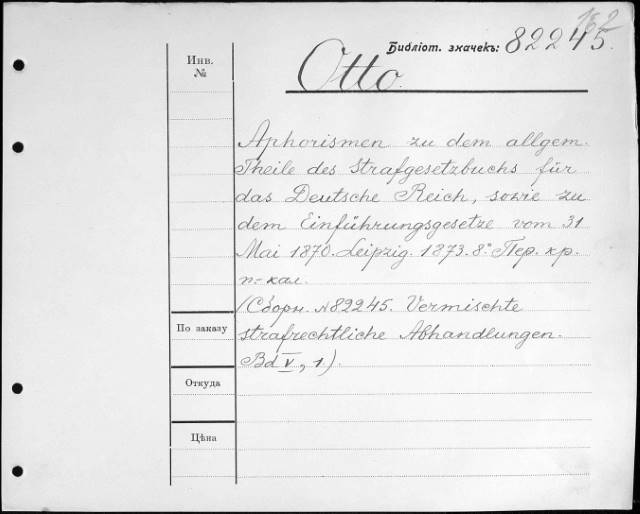 162
Библіот. значекъ: 82245.
Инв. №
Otto.
Aphorismen zu dem allgem.
Theile des Strafgesetzbuchs für
das Deutsche Reich, sowie zu
dem Einführungsgesetze vom 31
Mai 1870. Leipzig. 1873. 8º. Пер. кр.
п.-кал.
(Сборн. №82245. Vermischte
По заказу
strafrechtliche Abhandlungen.
Bd V, 1).
Откуда
Цѣна